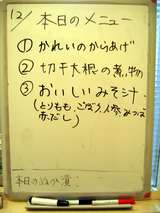 12/ 本日のメニュー
① かれいのからあげ
② 切干大根の煮物
③ おいしいみそ汁
(とりもも、ごぼう、人参、みつば
赤だし)
本日のぬか漬